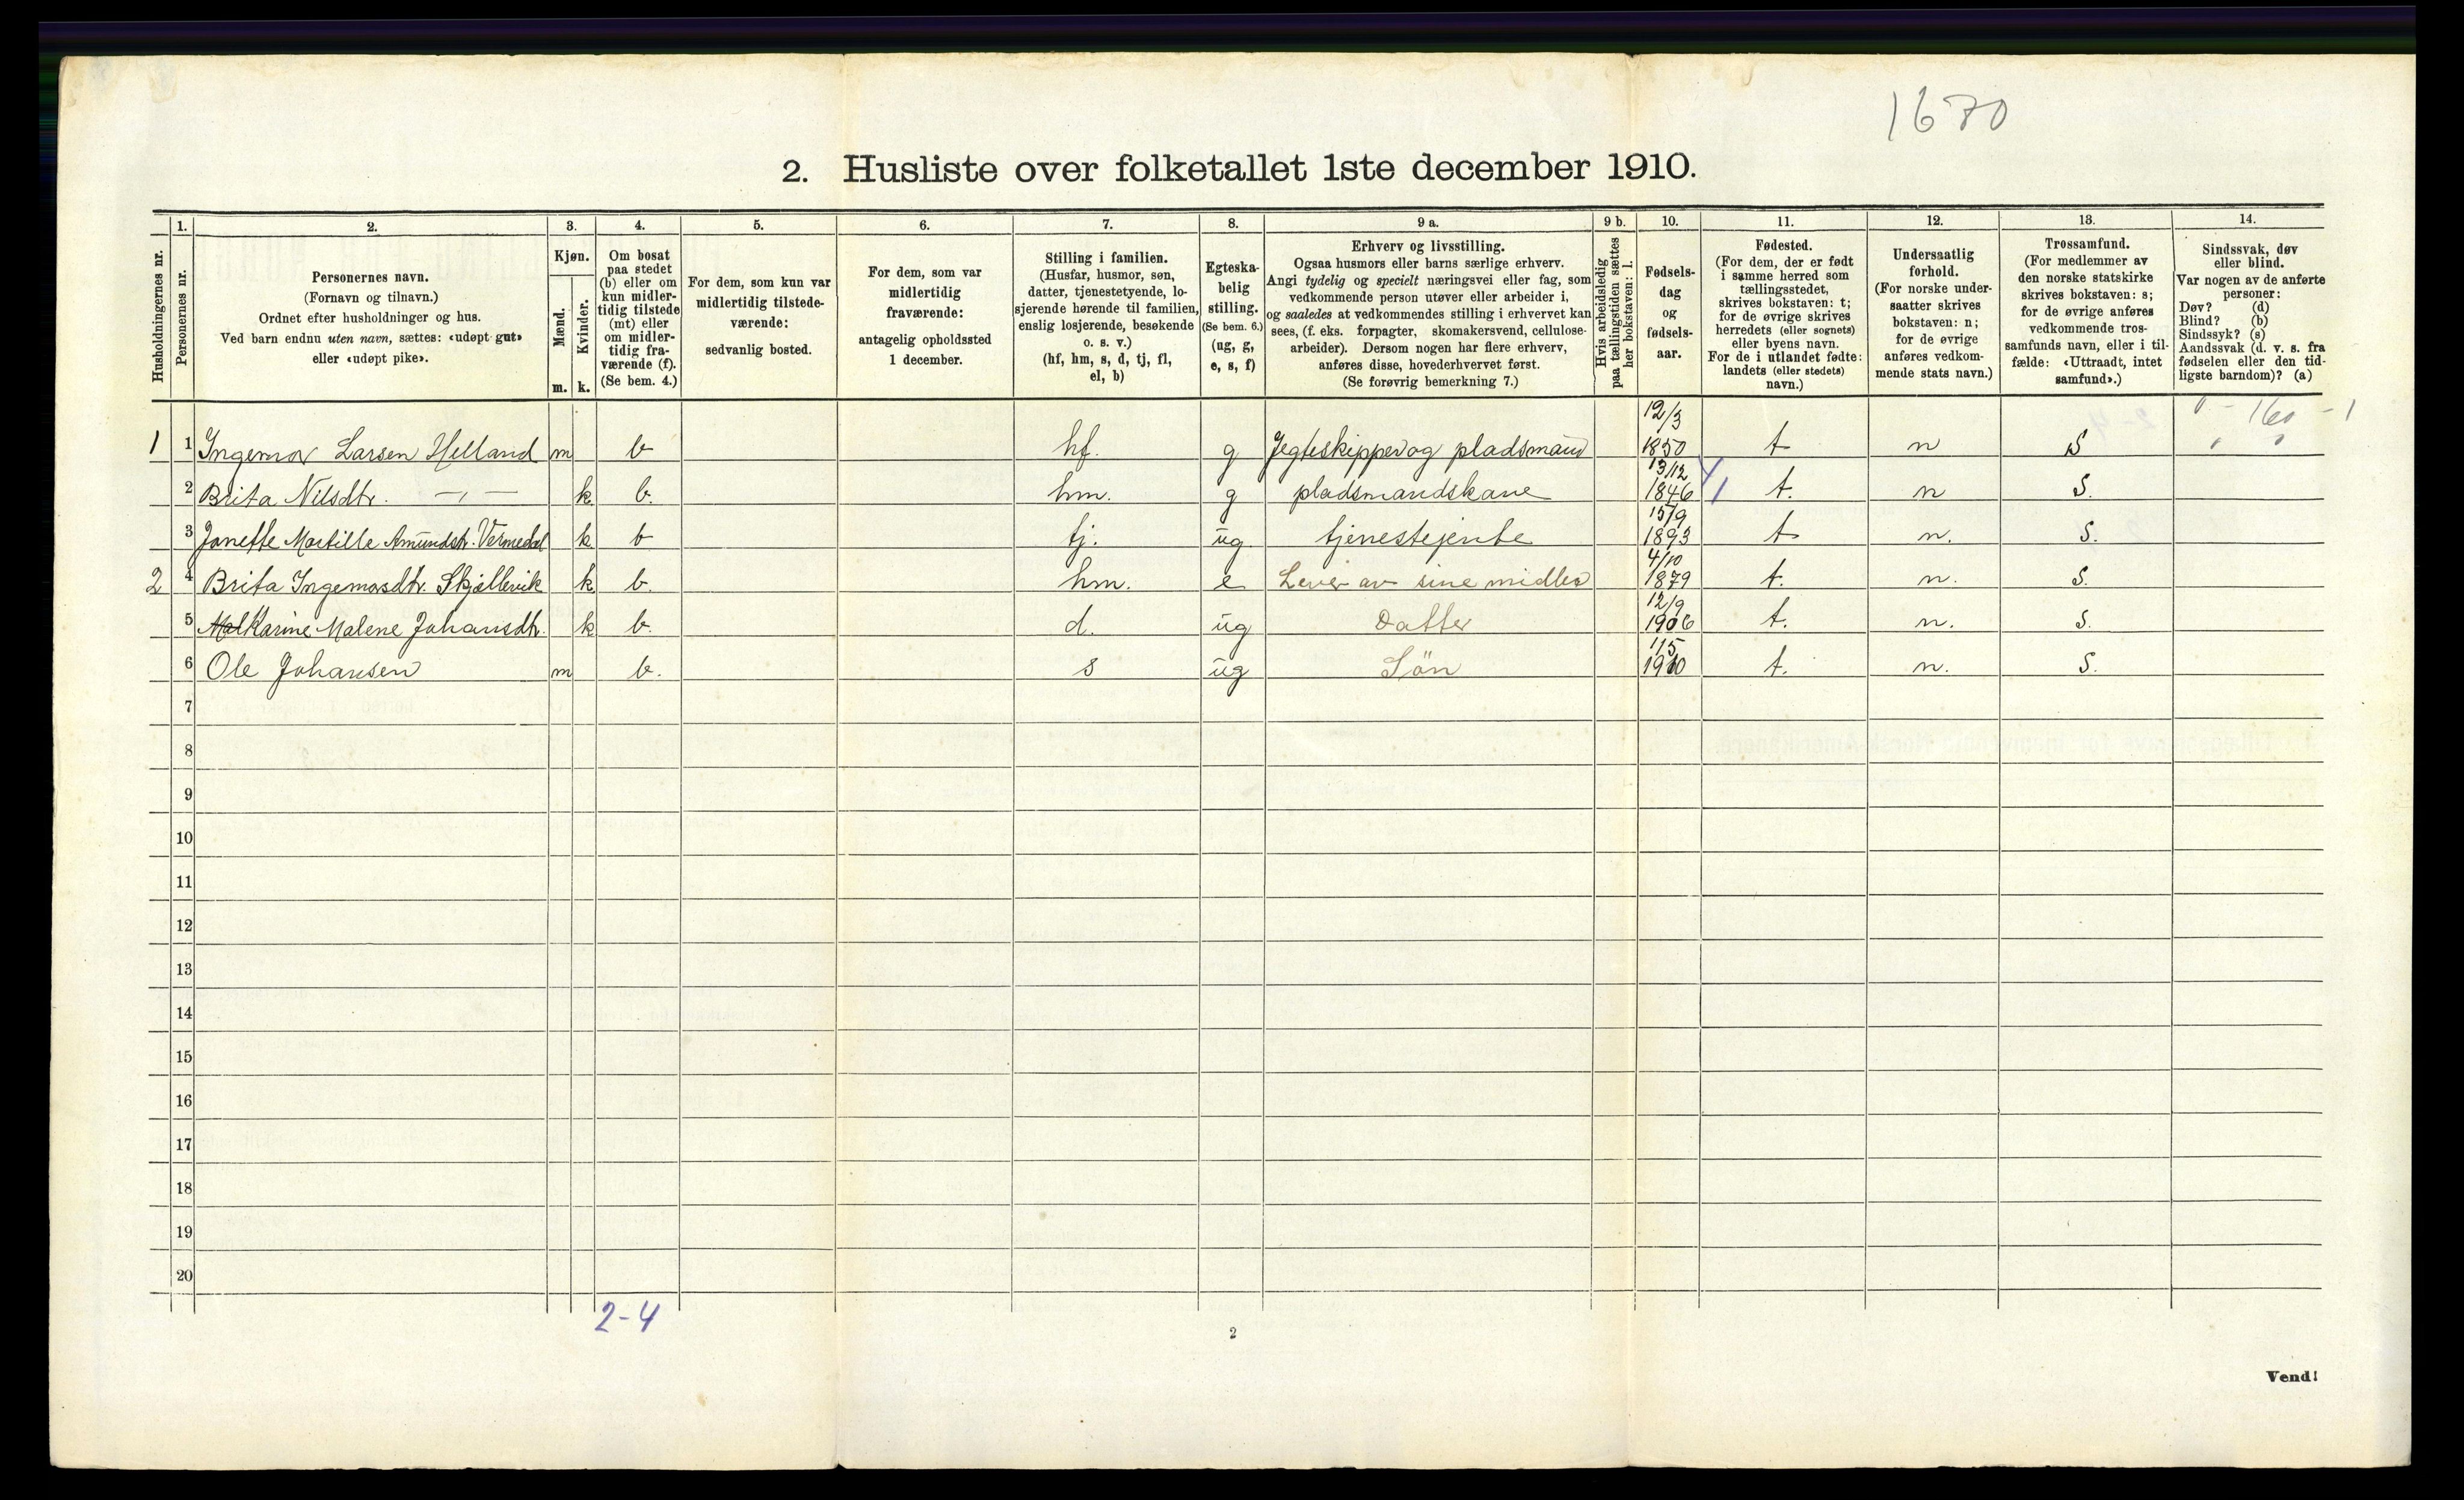 1670
2. Husliste over folketallet 1ste december 1910.
Husholdningernes nr.
1.
Personernes nr.
2.
Personernes navn.
(Fornavn og tilnavn.)
Ordnet efter husholdninger og hus.
Ved barn endnu uten navn, sættes: «udøpt gut»
eller «udøpt pike».
3.
Kjøn.
Mænd.
m.
Kvinder.
k.
4.
Om bosat
paa stedet
(b) eller om
kun midler-
tidig tilstede
(mt) eller
om midler-
tidig fra-
værende (f).
(Se bem. 4.)
5.
For dem, som kun var
midlertidig tilstede-
værende:
sedvanlig bosted.
6.
For dem, som var
midlertidig
fraværende:
antagelig opholdssted
1 december.
7.
Stilling i familien.
(Husfar, husmor, søn,
datter, tjenestetyende, lo-
sjerende hørende til familien,
enslig losjerende, besøkende
o. s. v.)
(hf, hm, s, d, tj, fl,
el, b)
8.
Egteska-
belig
stilling.
(Se bem. 6.)
(ug, g,
e, s, f)
9 a.
Erhverv og livsstilling.
Ogsaa husmors eller barns særlige erhverv.
Angi tydelig og specielt næringsvei eller fag, som
vedkommende person utøver eller arbeider i,
og saaledes at vedkommendes stilling i erhvervet kan
sees, (f. eks. forpagter, skomakersvend, cellulose-
arbeider). Dersom nogen har flere erhverv,
anføres disse, hovederhvervet først.
(Se forøvrig bemerkning 7.)
9 b.
Hvis arbeidsledig
paa tællingstiden sættes
her bokstaven: l.
10.
Fødsels-
dag
og
fødsels-
aar.
11.
Fødested.
(For dem, der er født
i samme herred som
tællingsstedet,
skrives bokstaven: t;
for de øvrige skrives
herredets (eller sognets)
eller byens navn.
For de i utlandet fødte:
landets (eller stedets)
navn.)
12.
Undersaatlig
forhold.
(For norske under-
saatter skrives
bokstaven: n;
for de øvrige
anføres vedkom-
mende stats navn.)
13.
Trossamfund.
(For medlemmer av
den norske statskirke
skrives bokstaven: s;
for de øvrige anføres
vedkommende tros-
samfunds navn, eller i til-
fælde: «Uttraadt, intet
samfund».)
14.
Sindssvak, døv
eller blind.
Var nogen av de anførte
personer:
Døv? (d)
Blind? (b)
Sindssyk? (s)
Aandssvak (d. v. s. fra
fødselen eller den tid-
ligste barndom)? (a)
1 1 Ingemar Larsen Helland m b hf. g Jegteskipper og pladsmand 12/3 1850 t n S
2 Brita Nilsdtr. —„— k b. hm. g pladsmandskane 13/12 1846 t. n S.
3 Janette Martille Amundsdt. Vermedal k b tj. ug tjenestejente 15/9 1893 t n. S.
2 4 Brita Ingemarsdtr. Skjellevik k b. hm. e Lever av sine midler 4/10 1879 t. n. S.
5 Karine Malene Johansdtr. k b. d. ug Datter 12/9 1906 t. n. S.
6 Ole Johansen m b. s ug Sön 11/5 1910 t. n. S.
7
8
9
10
11
12
13
14
15
16
17
18
19
20
2-4
2
Vend!